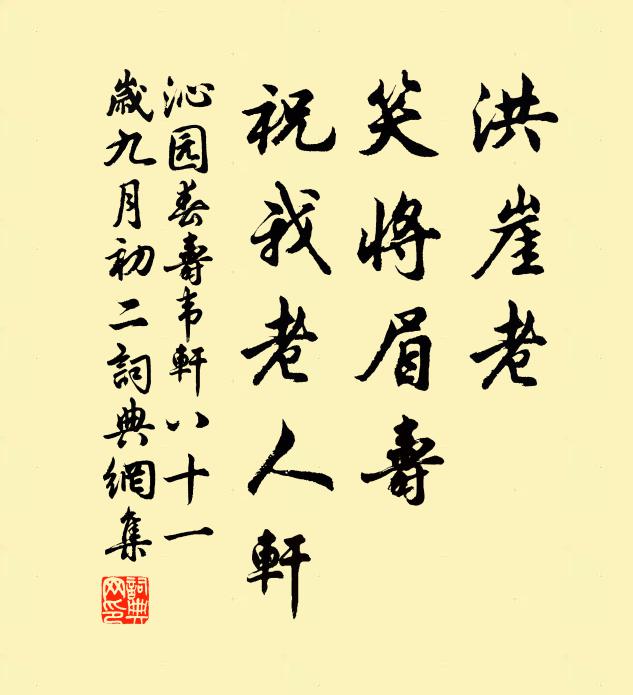 洪崖老
笑將眉壽
祝我老人軒
沁园春壽韦軒八十一
歲九月初二詞典網集
詞典网印